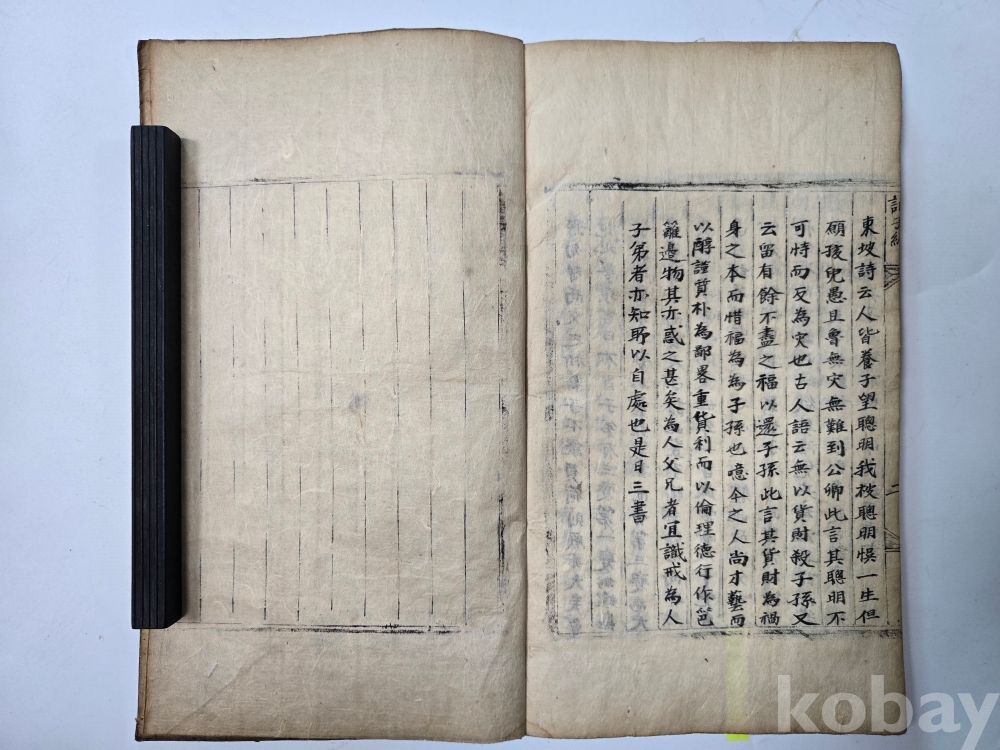 東坡詩云人皆養子望聰明我被聰明悞一生但
願孩兒愚且魯無灾無難到公卿此言其聰明不
可恃而反為灾也古人語云無以貨財殺子孫又
云留有餘不盡之福以還子孫此言其貨財為禍
身之本而惜福為為子孫也噫今之人尚才藝而
以醇謹質朴為鄙畧重貨利而以倫理德行作笆
籬邊物其亦惑之甚矣為人父兄者宜識戒為人
子弟者亦知所以自處也是日三書
kobay